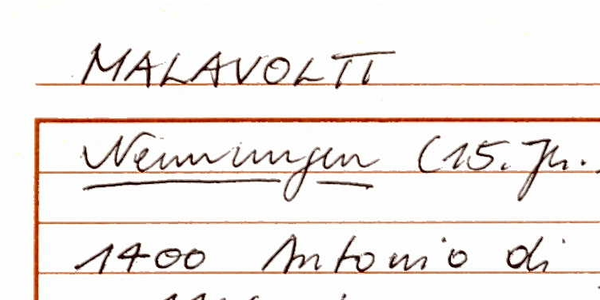 MALAVOLTI
Nennungen (15. Jh.
1400 Antonio di